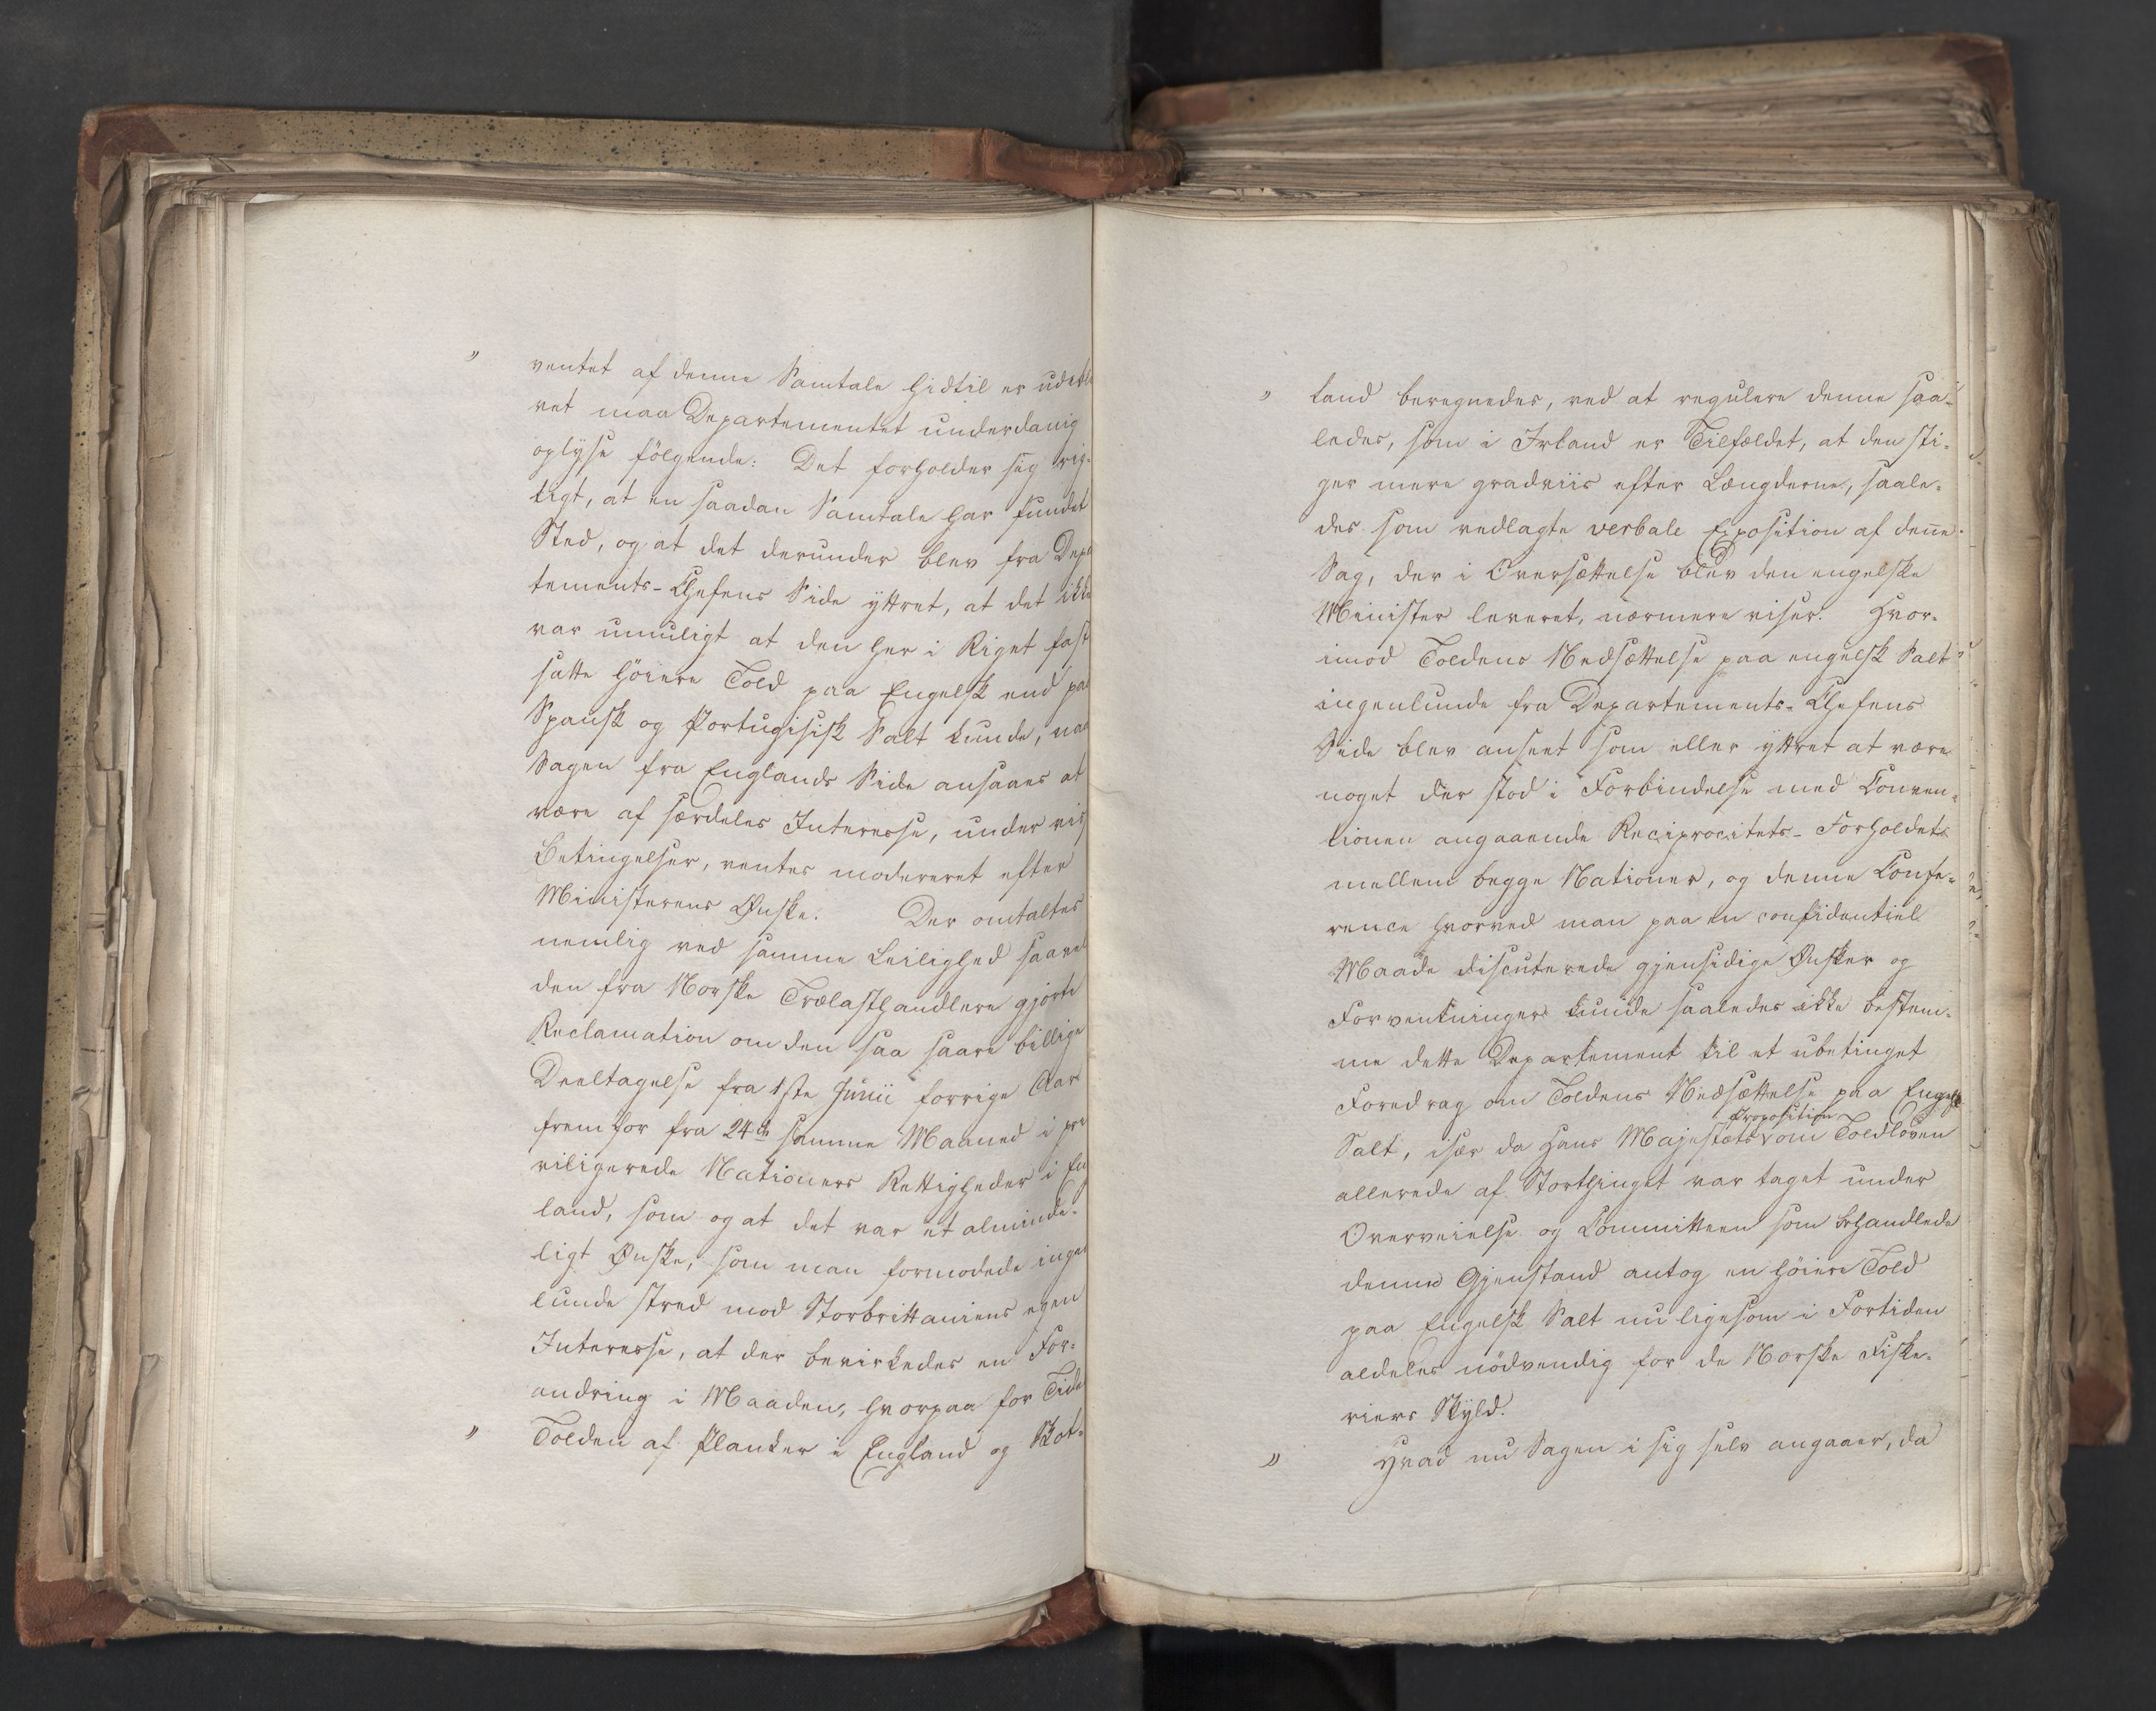 " ventet af denne Samtale hidtil er udeble
vet maa Departementet underdanig
oplyse fölgende: Det forholder sig rig-
tigt, at en saadan Samtale har fundet
Sted, og at det derunder blev fra Depa
tements-Chefens Side yttret, at det ikke
var umuligt at den her i Riget fast
satte höiere Told paa Engelsk end paa
Spansk og Portugisisk Salt kunde, naar
Sagen fra Englands Side ansaaes at
være af særdeles Interesse, under viss
Betingelser, ventes modereret efter
Ministerens Ønske. Der omtaltes
nemlig ved samme Leilighed saavel
den fra Norske Trælasthandlere gjorte
Reclamation om den saa saare billige
Deeltagelse fra 1ste Junii forrige Aar
fremfor fra 24de samme Maaned i pri
viligerede Nationers Rettigheder i En
land, som og at det var et alminde-
ligt Ønske, som man formodede ingen
lunde stred mod Storbrittaniens egen
Interesse, at der bevirkedes en For-
andring i Maaden, hvorpaa for Tiden
" Tolden af Planker i England og Skot-
" land beregnedes, ved at regulere denne saa-
ledes, som i Irland er Tilfældet, at den sti-
ger mere gradviis efter Længderne, saale-
des som vedlagte verbale Exposition af deñe
Sag, der i Oversættelse blev den engelske
Minister leveret, nærmere viser. Hvor-
imod Toldens Nedsættelse paa engelsk Salt
ingenlunde fra Departements-Chefens
Side blev anseet som eller yttret at være
noget der stod i Forbindelse med Conven-
tionen angaaende Reciprocitets-Forholdet
mellem begge Nationer, og denne Confe-
rence hvorved man paa en confidentiel
Maade discuterede gjensidige Ønsker og
Forventninger kunde saaledes ikke bestem-
me dette Departement til et ubetinget
Foredrag om Toldens Nedsættelse paa Engelsk
Proposition
Salt, især da Hans Majestæts om Toldloven
allerede af Storthinget var taget under
Overveielse og Committeen som behandlede
denne Gjenstand antog en höiere Told
paa Engelsk Salt nu ligesom i Fortiden
aldeles nödvendig for de Norske Fiske-
riers Skyld.
" Hvad nu Sagen i sig selv angaaer, da